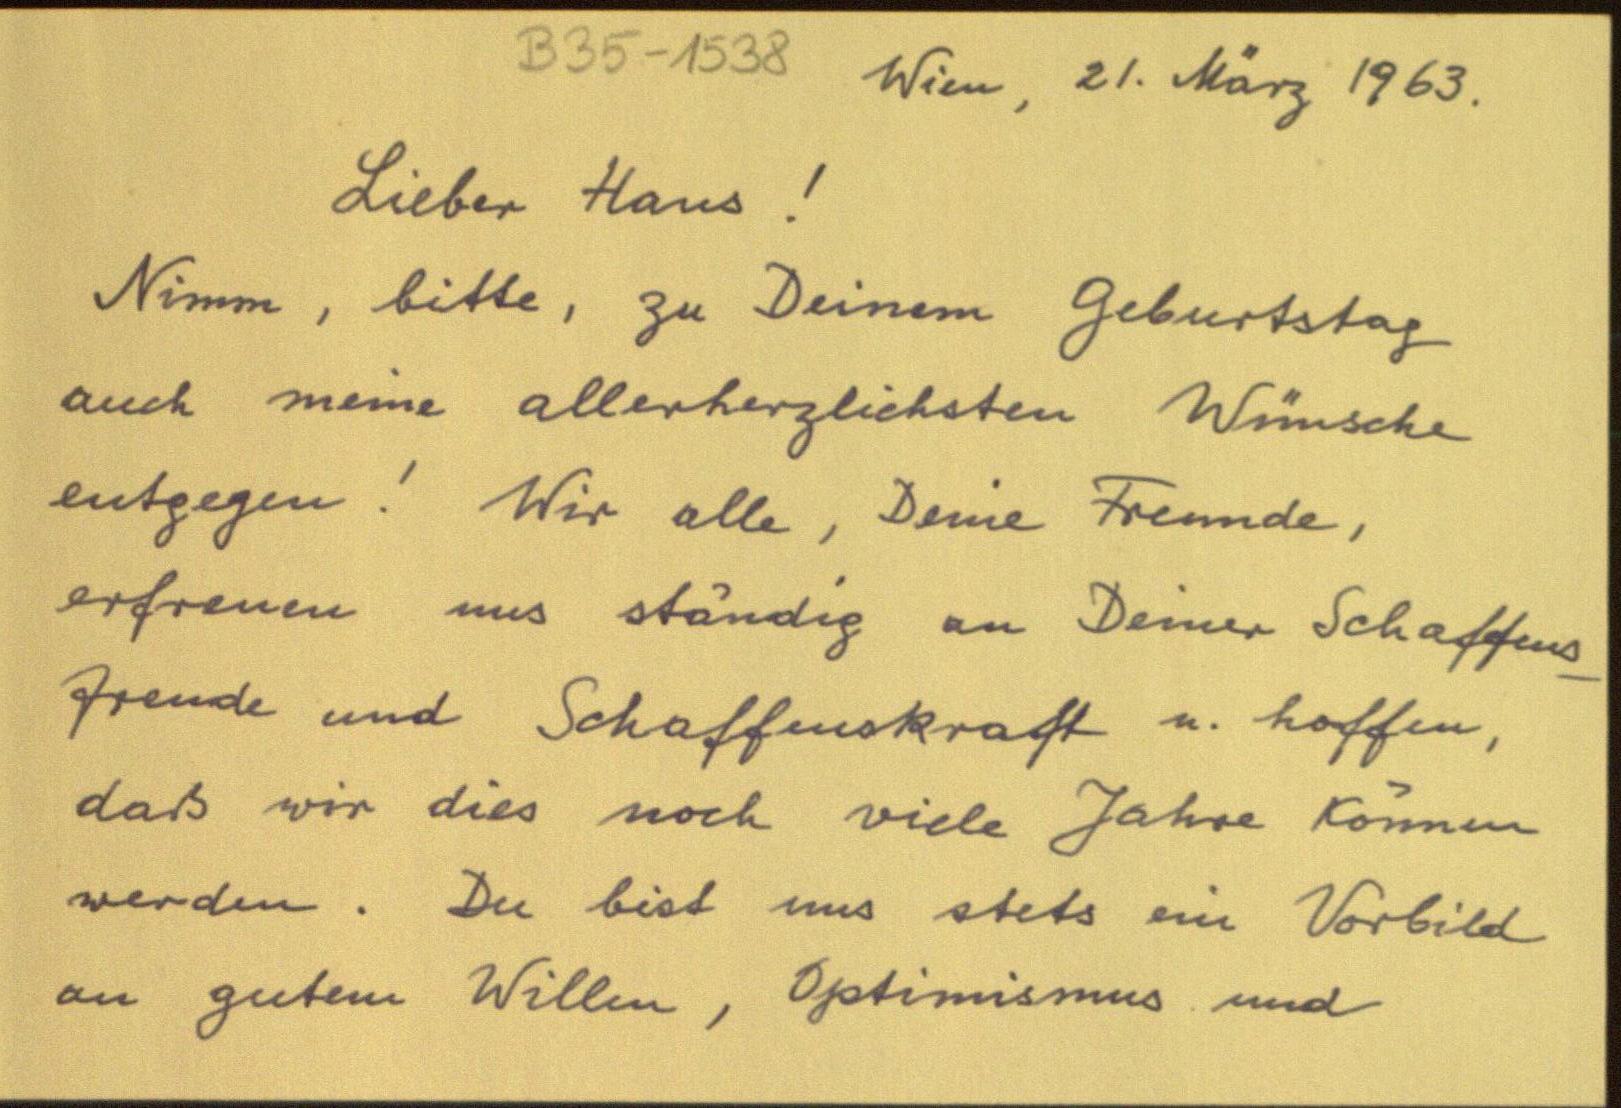 B35-1538
Wien, 21. März 1963.
Lieber Hans!
Nimm, bitte, zu Deinem Geburtstag
auch meine allerherzlichsten Wünsche
entgegen! Wir alle, Deine Freunde,
erfreuen uns ständig an Deiner Schaffens-
freude und Schaffenskraft u. hoffen,
daß wir dies noch viele Jahre können
werden. Du bist uns stets ein Vorbild
an gutem Willen, Optimismus und